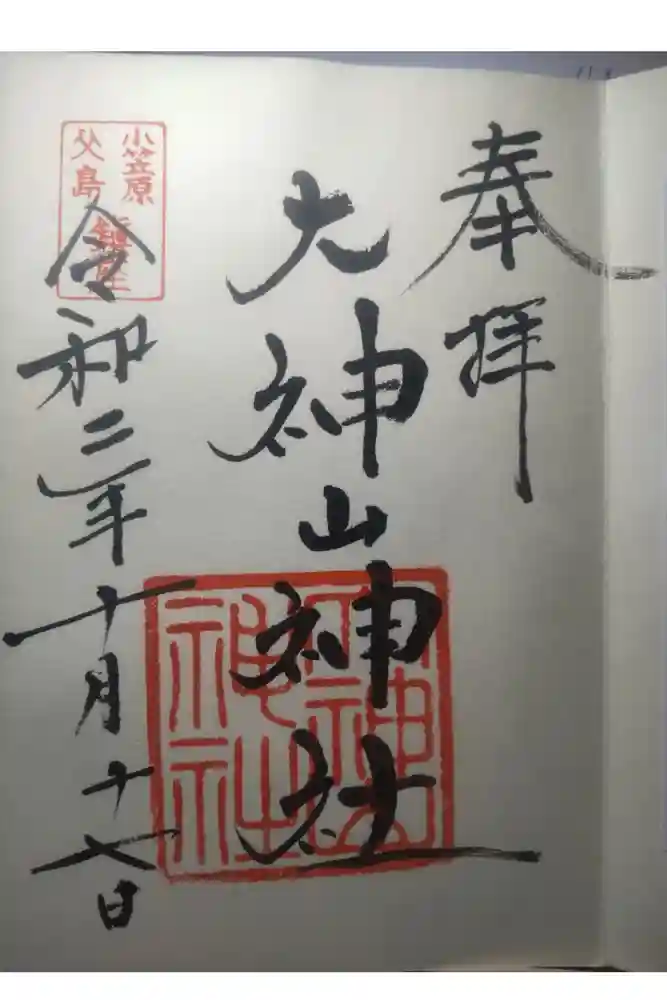 奉拝
大神山神社
令和三年十月十七日
小笠原
父島 鎮座